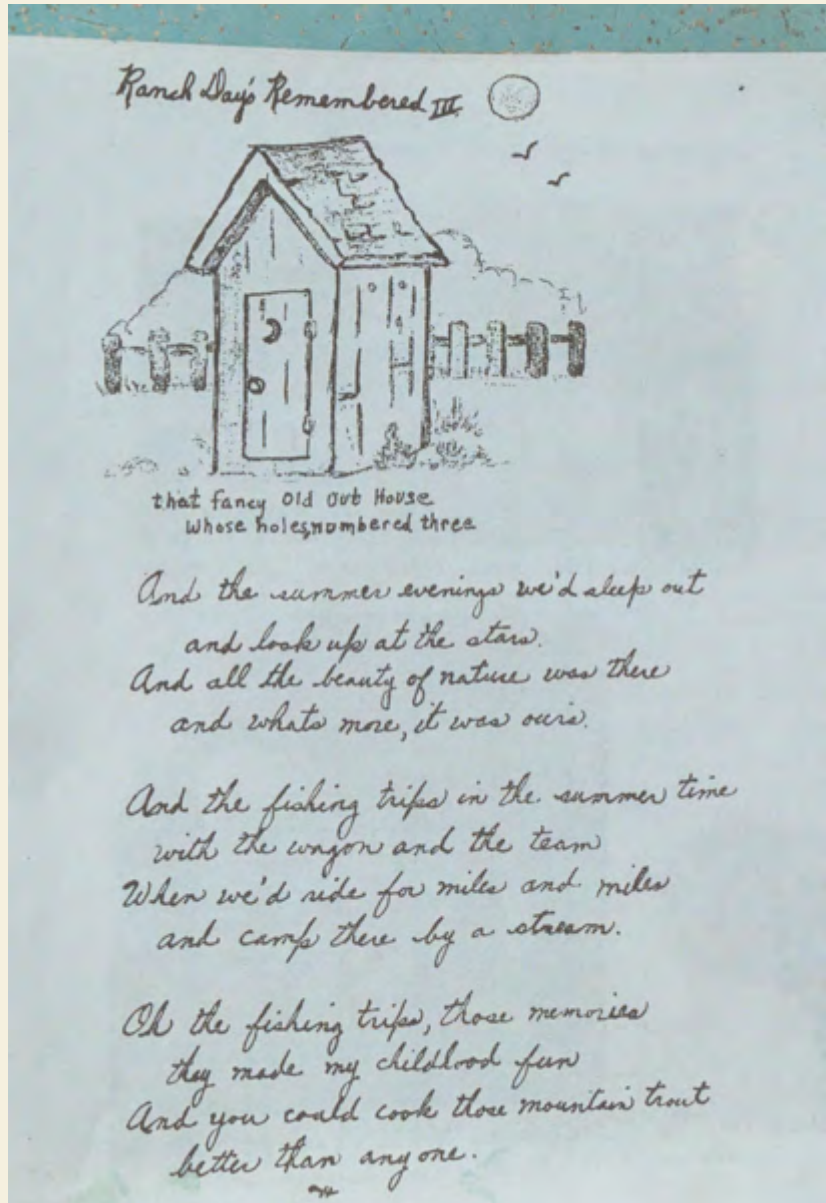 Ranch Day's Remembered III
that fancy old Out House
Whose holes, numbered three
And the summer evenings we'd sleep out
and look up at the stars.
And all the beauty of nature was there
and whats more, it was ours.
And the fishing trips in the summer time
with the wagon and the team
When we'd ride for miles and miles
and camp there by a stream.
Oh the fishing trips, those memories
they made my childhood fun
And you could cook those mountain trout
better than anyone.